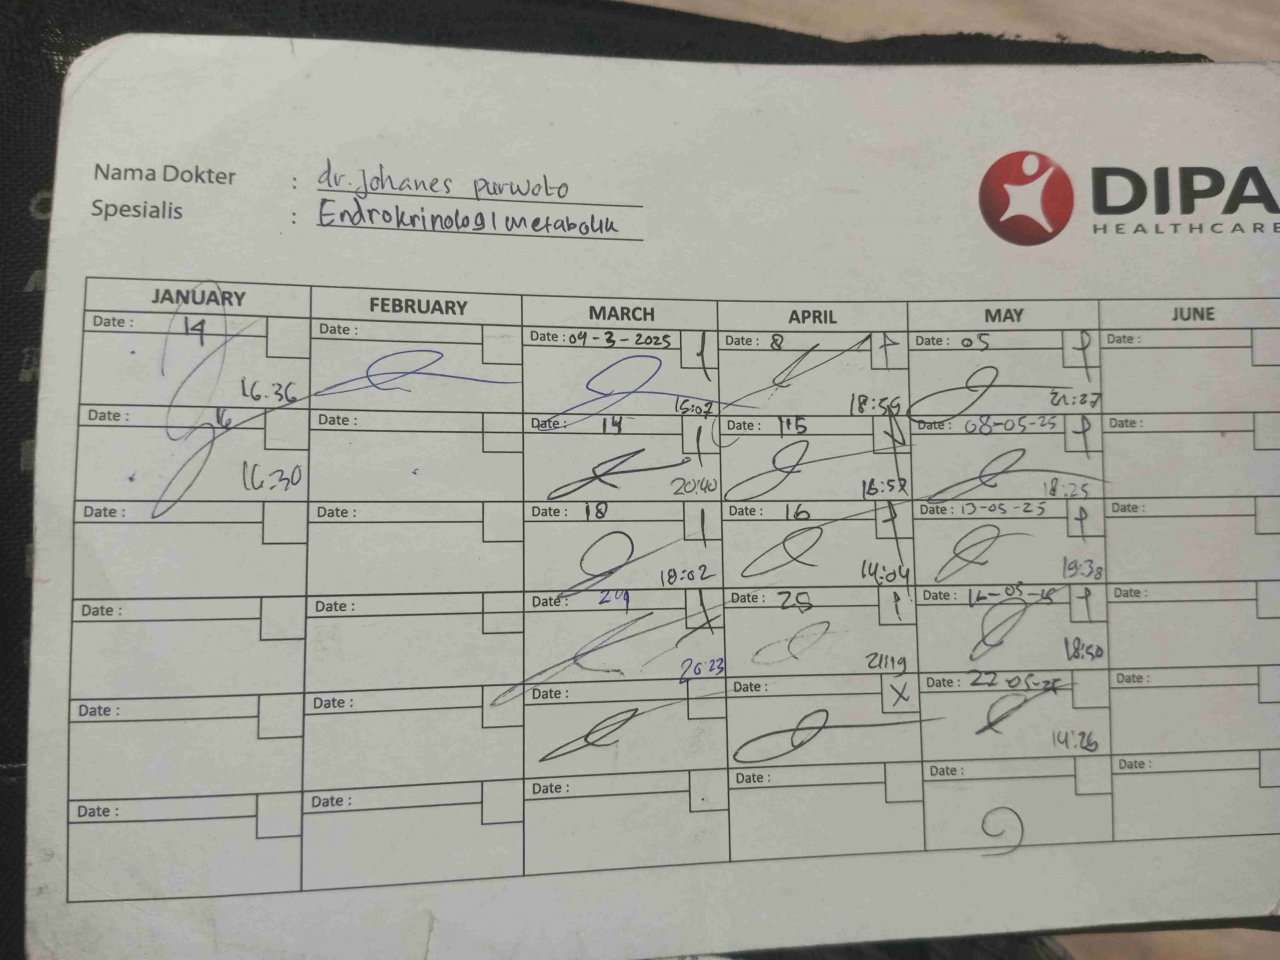 Nama Dokter : dr. Johanes purwoto
Spesialis : Endrokrinologi metabolik
DIPA
HEALTHCARE
JANUARY FEBRUARY MARCH APRIL MAY JUNE
Date : 14 Date : Date : 04-3-2025 Date : 8 Date : 05 Date :
16.36 15:07 18:55 21:27
16 Date : Date : Date : 14 Date : 15 Date : 08-05-25 Date :
16:30 20:40 16:57 18:25
Date : Date : Date : 18 Date : 16 Date : 13-05-25 Date :
18:02 14:04 19:38
Date : Date : Date : Date : 25 Date : Date :
20:23 21:19 18:50
Date : Date : Date : Date : X Date : 22 05-25 Date :
14:26
Date : Date : Date : Date : Date : Date :